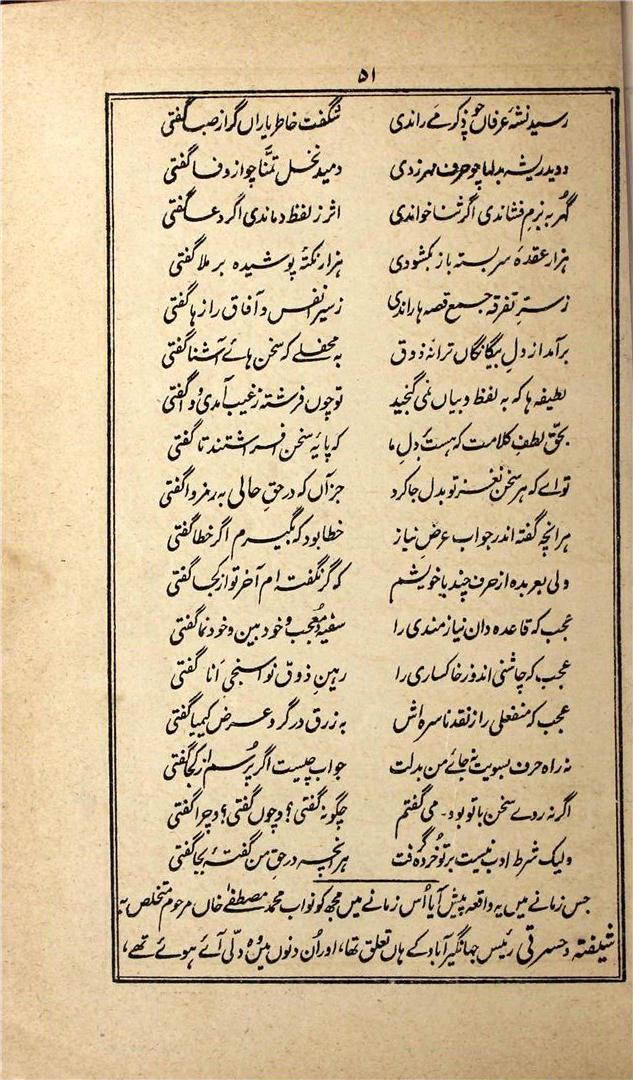 ۵۱
رسید نشۂ عرفاں چو ذکر مے راندی شگفت خاطر یاراں گر از صبا گفتی
دوید ریشہ بدلہا چو حرف مہر زدی دمید نخل تمنّا چو از وفا گفتی
گہر بہ بزم فشاندی اگر ثنا خواندی اثر ز لفظ دماندی اگر دعا گفتی
ہزار عقدۂ سر بستہ باز بکشودی ہزار نکتۂ پوشیدہ بر ملا گفتی
ز سترِ تفرقہ جمع قصہ ہا راندی ز سیرِ انفس و آفاق راز ہا گفتی
برآمد از دلِ بیگانگاں ترانۂ ذوق بہ محفلے کہ سخن ہائے آشنا گفتی
لطیفہ ہا کہ بہ لفظ و بیاں نمی گنجید تو چوں فرشتہ ز غیب آمدی و وا گفتی
بحقِّ لطفِ کلامت کہ ہست دلِ ما کہ پایۂ سخن افراشتند تا گفتی
تو اے کہ ہر سخن نغز تو بدل جا کرد جز آں کہ در حقِ حالی بہ رمز وا گفتی
ہر انچہ گفتہ اندر جواب عرضِ نیاز خطا بود کہ بگیرم اگر خطا گفتی
ولی بعربدہ از حرف چند با خویشم کہ گر نگفتہ ام آخر تو از کجا گفتی
عجب کہ قاعدہ دان نیازمندی را سفیہ و معجب و خود بین و خود نما گفتی
عجب کہ چاشنی اندوز خاکساری را رہینِ ذوق نوا سنجیِ اَنا گفتی
عجب کہ منفعلی را ز نقد ناسرہ اش بہ زرق در گرو عرض کیمیا گفتی
نہ راہ حرف بسویت نہ جائے من بدلت جواب چیست اگر پرسم از کجا گفتی
اگر نہ روے سخن با تو بود۔ می گفتم چگونہ گفتی؟ و چوں گفتی؟ و چرا گفتی
ولیک شرط ادب نیست بر تو خردہ گرفت ہر انچہ در حقِ من گفتۂ بجا گفتی
جس زمانے میں یہ واقعہ پیش آیا اُس زمانے میں مجھ کو نواب محمد مصطفےٰ خاں مرحوم متخلص بہ
شیفتہ و حسرتی رئیس جہانگیر آباد کے ہاں تعلق تھا، اور اُن دنوں میں وہ دلّی آئے ہوئے تھے،